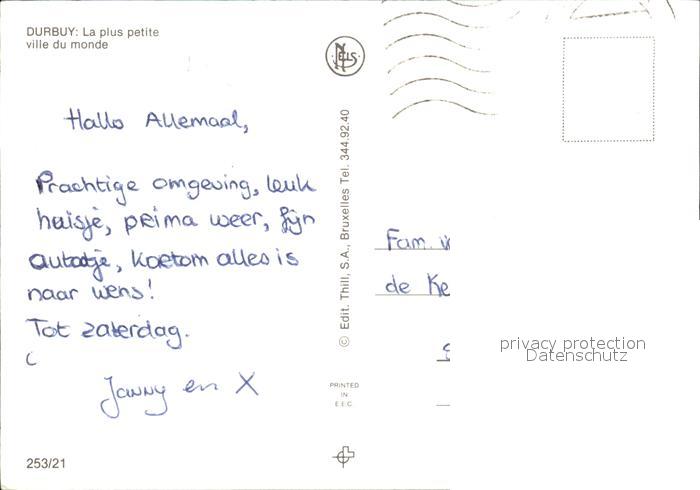 DURBUY: La plus petite
ville du monde
NELS
Hallo Allemaal,
Prachtige omgeving, leuk
huisje, prima weer, fijn
autootje, kortom alles is
naar wens!
Tot zaterdag.
Janny en X
253/21
© Edit. Thill, S.A., Bruxelles Tel. 344.92.40
PRINTED
IN
E.E.C.
Fam. v
de Ke
privacy protection
Datenschutz